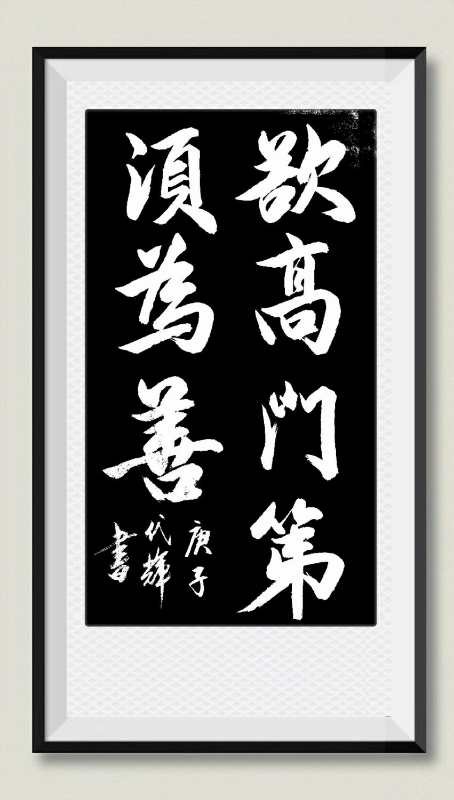 欲高門第
須為善
庚子
代輝
書